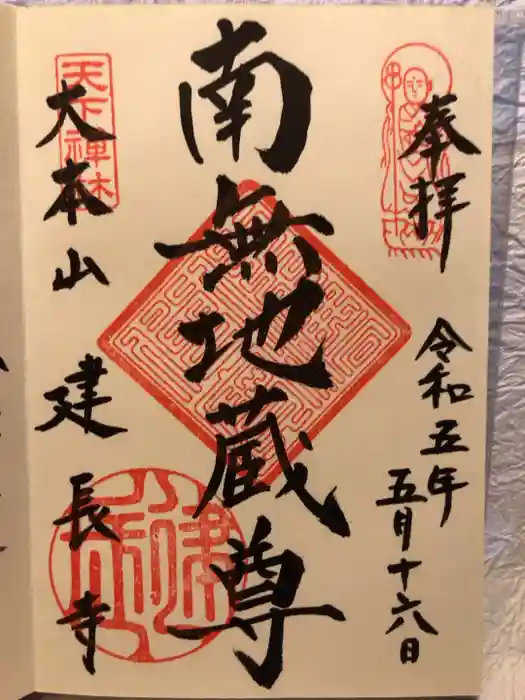 奉拝
令和五年
五月十六日
南無地蔵尊
大本山 建長寺
天下禅林